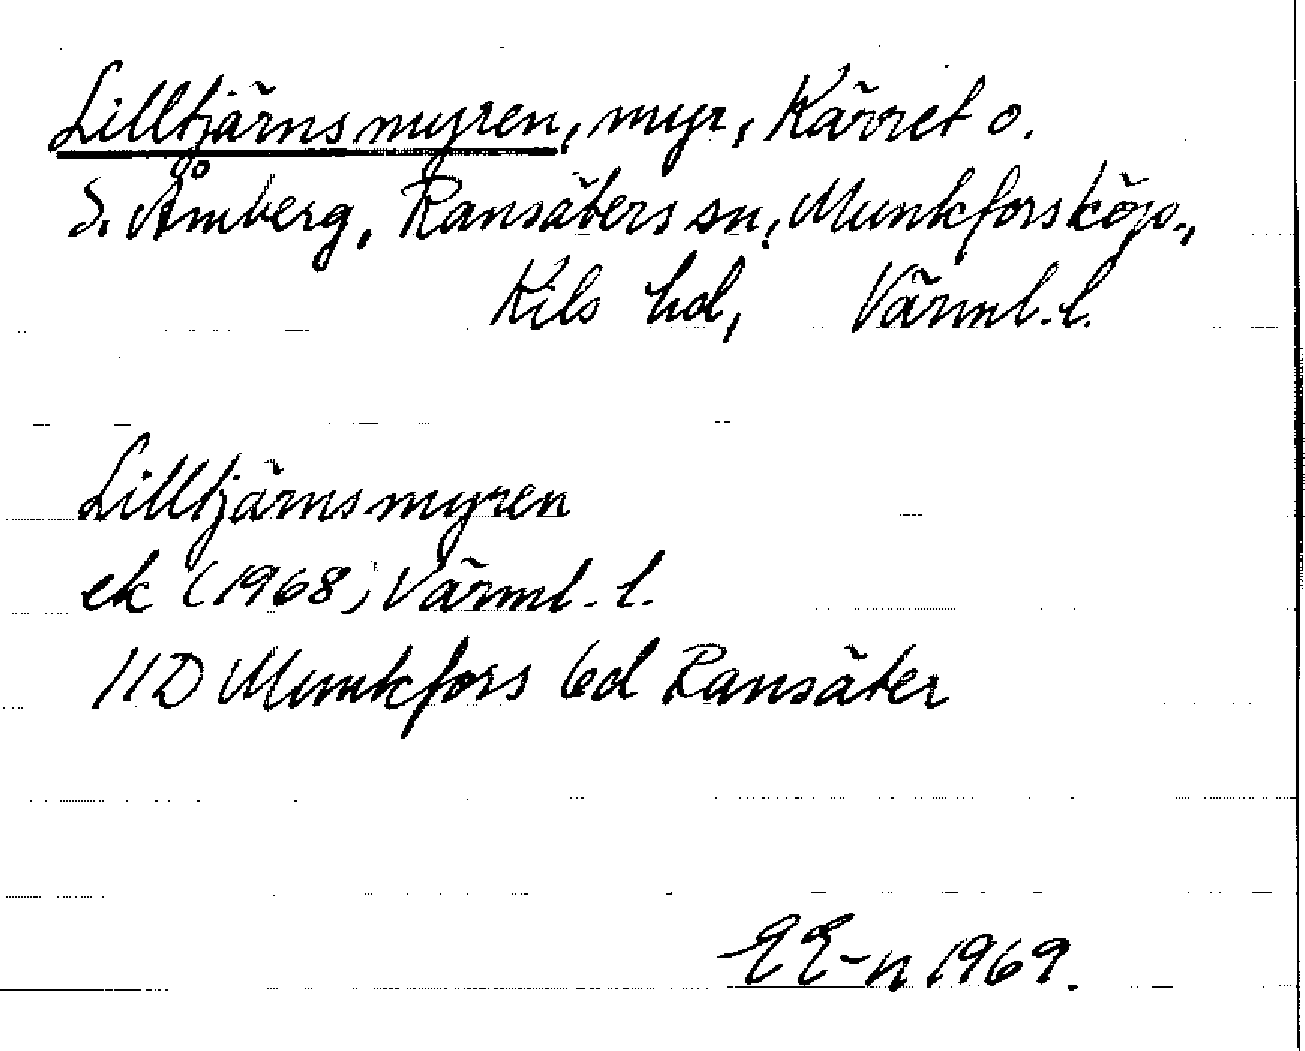 Lilltjärnsmyren, myr, Kärret o.
S. Åmberg, Ransäters sn, Munkfors köp.,
Kils hd, Värml. l.
Lilltjärnsmyren
ek (1968) Värml. l.
11D Munkfors 6d Ransäter
EE-n 1969.